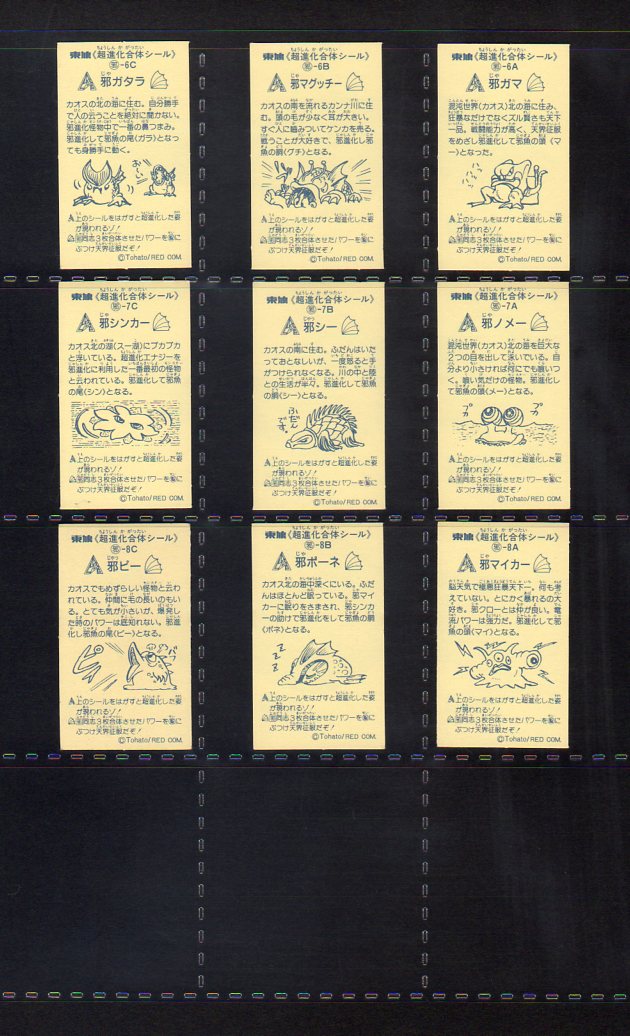 東鳩《超進化合体シール》
邪-6C
邪ガタラ
カオスの北の海に住む。自分勝手
で人の云うことを絶対に聞かない。
超進化怪物中で一番の鼻つまみ。
邪進化して邪魚の尾(ガラ)となっ
ても身勝手に動く。
上のシールをはがすと超進化した姿
が現われるゾ!
同志3枚合体させたパワーを髪に
ぶつけ天界征服だぞ!
©Tohato/RED COM.
東鳩《超進化合体シール》
邪-6B
邪マグッチー
カオスの南を流れるカンナ川に住
む。頭の毛が少なく耳が大きい。
すぐ人に噛みついてケンカを売る。
戦うことが大好きで、邪進化し邪
魚の胴(グチ)となる。
上のシールをはがすと超進化した姿
が現われるゾ!
同志3枚合体させたパワーを髪に
ぶつけ天界征服だぞ!
©Tohato/RED COM.
東鳩《超進化合体シール》
邪-6A
邪ガマ
混沌世界(カオス)北の海に住み、
狂暴なだけでなくズル賢さも天下
一品。戦闘能力が高く、天界征服
をめざし邪進化して邪魚の頭(マ
ー)となった。
上のシールをはがすと超進化した姿
が現われるゾ!
同志3枚合体させたパワーを髪に
ぶつけ天界征服だぞ!
©Tohato/RED COM.
東鳩《超進化合体シール》
邪-7C
邪シンカー
カオス北の湖(スー湖)にプカプカ
と浮いている。超進化エナジーを
邪進化に利用した一番最初の怪物
と云われている。邪進化して邪魚
の尾(シン)となる。
上のシールをはがすと超進化した姿
が現われるゾ!
同志3枚合体させたパワーを髪に
ぶつけ天界征服だぞ!
©Tohato/RED COM.
東鳩《超進化合体シール》
邪-7B
邪シー
カオスの南に住む。ふだんはいた
っておとなしいが、一度怒ると手
がつけられなくなる。川の中と陸
との生活が半々。邪進化して邪魚
の胴(シー)となる。
ふだん
です。
上のシールをはがすと超進化した姿
が現われるゾ!
同志3枚合体させたパワーを髪に
ぶつけ天界征服だぞ!
©Tohato/RED COM.
東鳩《超進化合体シール》
邪-7A
邪ノメー
混沌世界(カオス)北の海を巨大な
2つの目を出して泳いでいる。自
分より小さければ何にでも喰いつ
く。喰い気だけの怪物。邪進化し
て邪魚の頭(メー)となる。
プカ
プカ
上のシールをはがすと超進化した姿
が現われるゾ!
同志3枚合体させたパワーを髪に
ぶつけ天界征服だぞ!
©Tohato/RED COM.
東鳩《超進化合体シール》
邪-8C
邪ビー
カオスでもめずらしい怪物と云わ
れている。仲間に毛の長いのもい
る。とても気が小さいが、爆発し
た時のパワーは底知れない。邪進
化し邪魚の尾(ビー)となる。
上のシールをはがすと超進化した姿
が現われるゾ!
同志3枚合体させたパワーを髪に
ぶつけ天界征服だぞ!
©Tohato/RED COM.
東鳩《超進化合体シール》
邪-8B
邪ボーネ
カオス北の海中深くにいる。ふだ
んはほとんど眠っている。邪マイ
カーに眠りをさまされ、邪シンカ
ーの助けで邪進化をして邪魚の胴
(ボネ)となる。
Z Z Z
上のシールをはがすと超進化した姿
が現われるゾ!
同志3枚合体させたパワーを髪に
ぶつけ天界征服だぞ!
©Tohato/RED COM.
東鳩《超進化合体シール》
邪-8A
邪マイカー
脳天気で極悪狂暴天下一。何も考
えていない。とにかく暴れるの大
好き。邪クローとは仲が良い。電
流パワーは強力だ。邪進化して邪
魚の頭(マイ)となる。
上のシールをはがすと超進化した姿
が現われるゾ!
同志3枚合体させたパワーを髪に
ぶつけ天界征服だぞ!
©Tohato/RED COM.